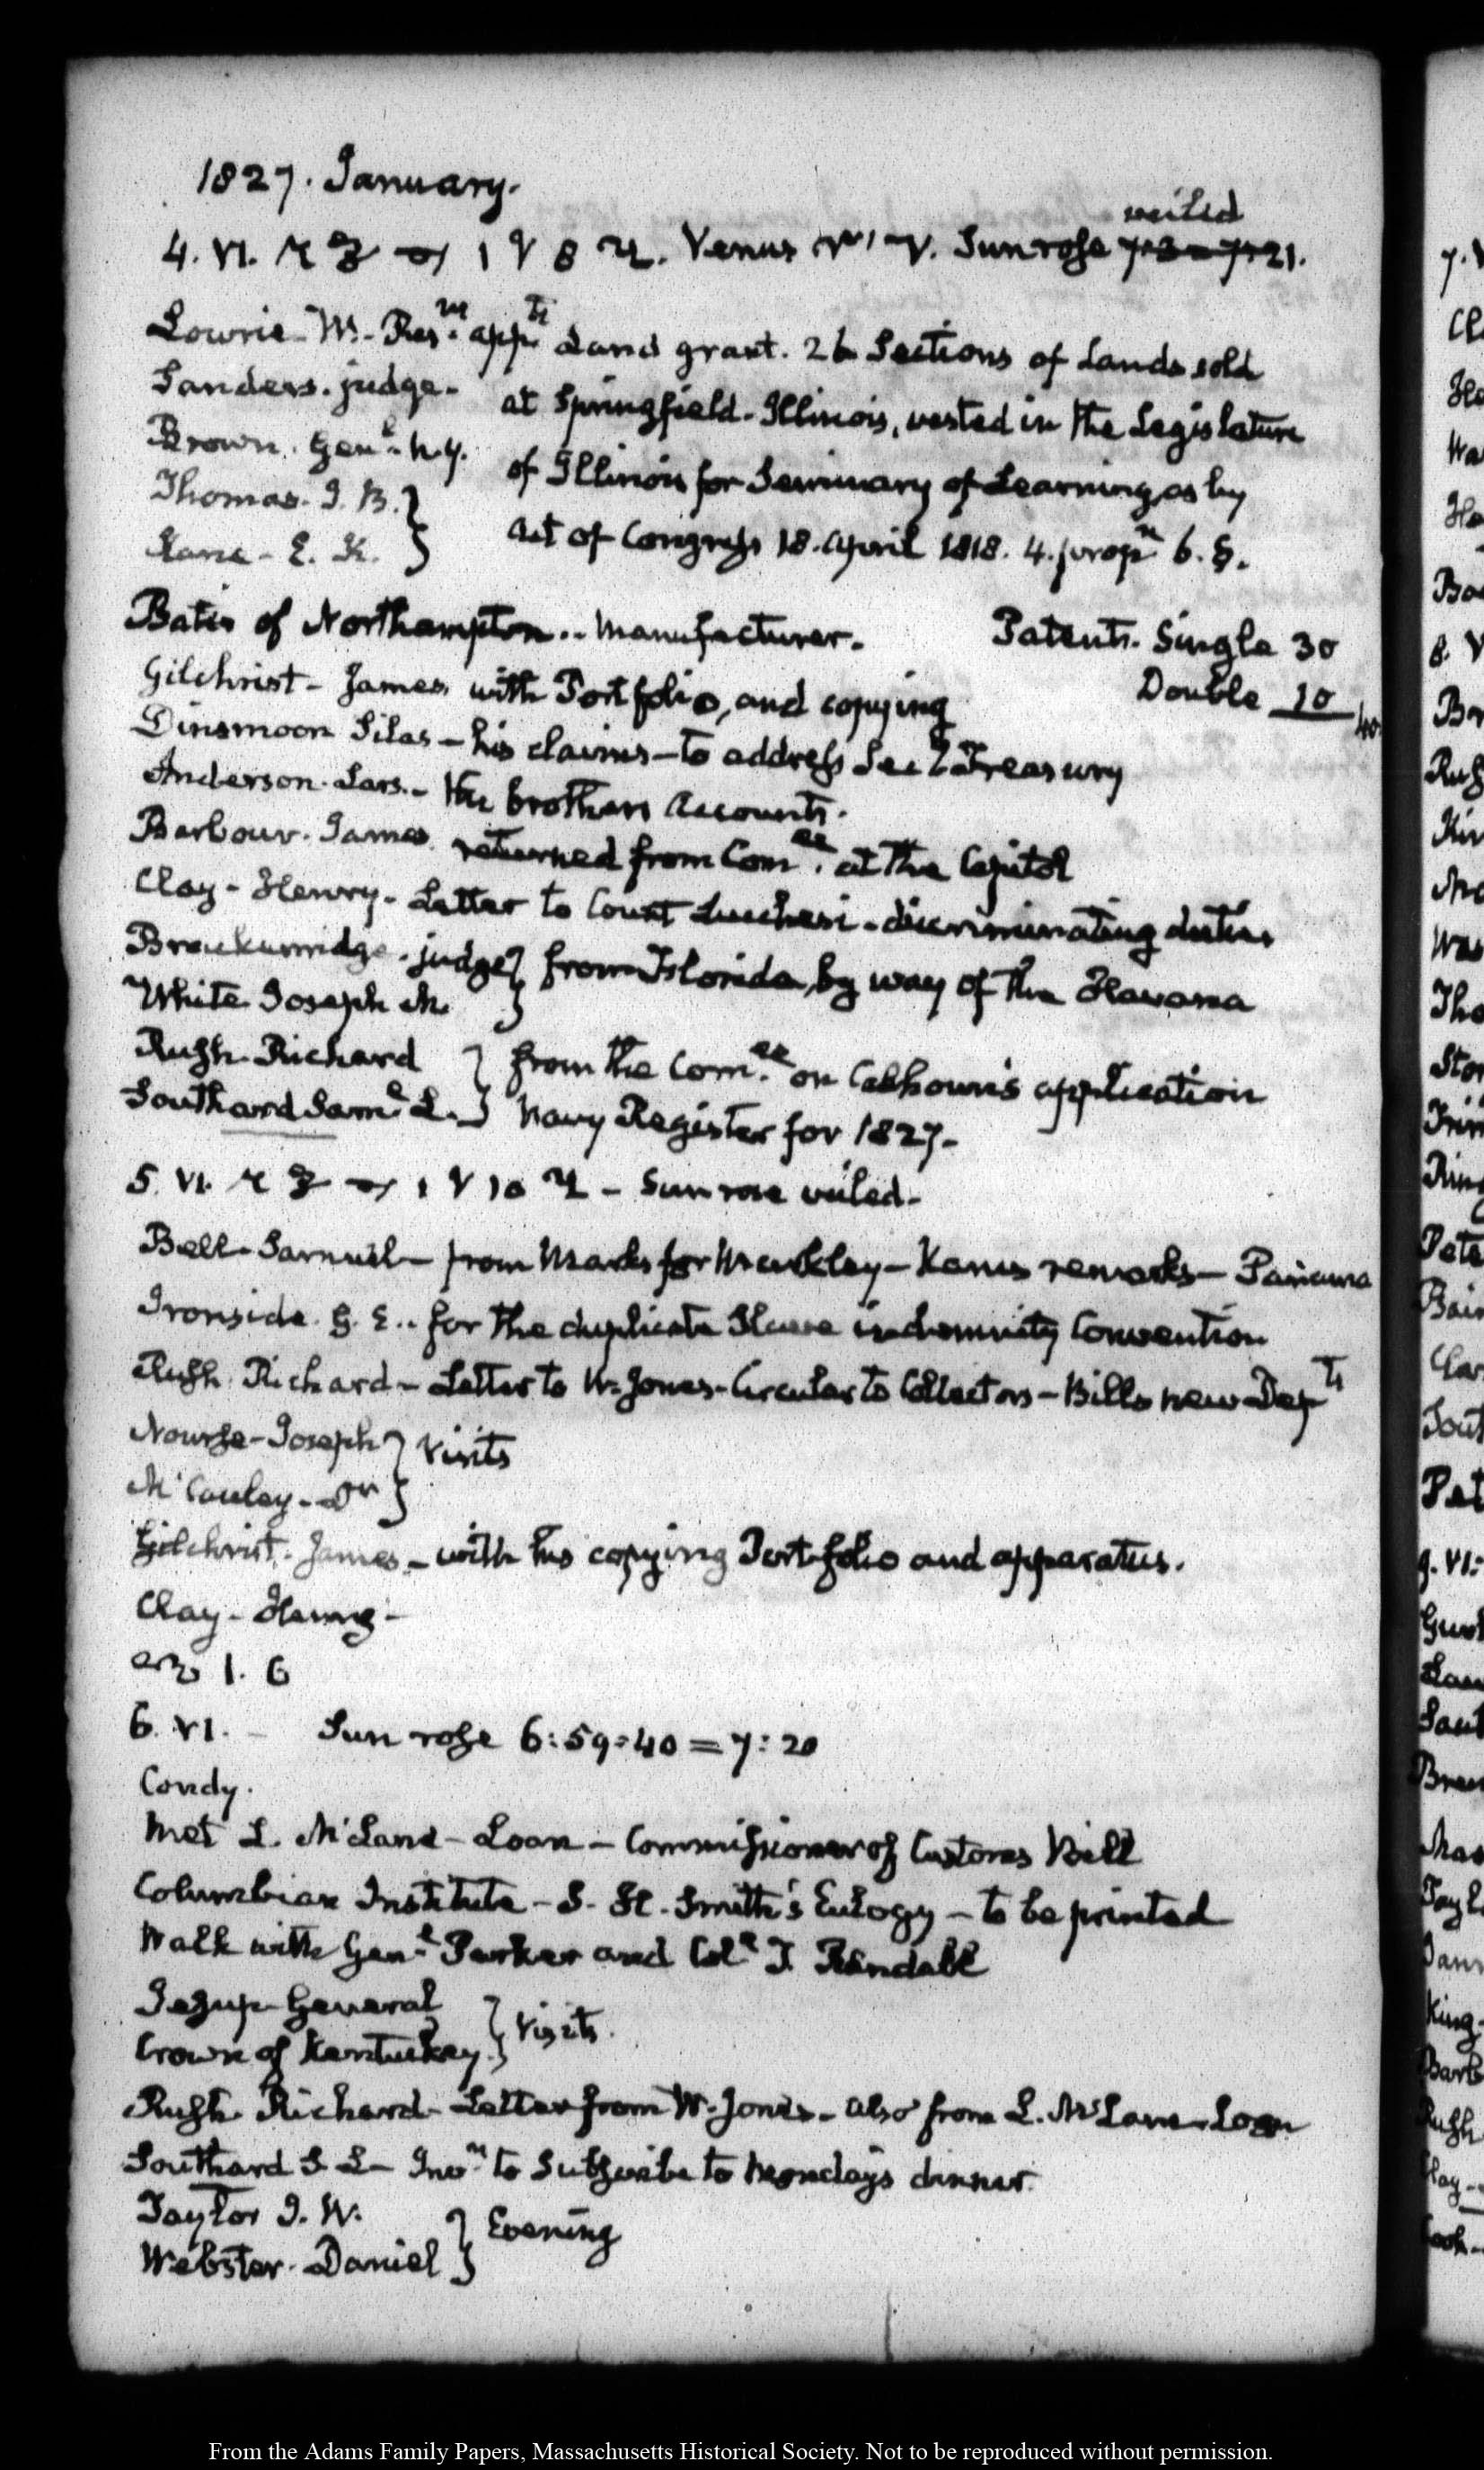 1827. January.
veiled
4. VI. Venus V. Sun rose 7:21.
Lowrie - W. - Resn. appts Land grant. 26 Sections of Lands sold
Sanders. judge - at Springfield - Illinois, vested in the Legislature
Brown. Genl. N.Y. of Illinois for Seminary of Learning, as by
Thomas. J. B. } Act of Congress 18. April 1818. 4. propn 6. §.
Kane - E. K. }
Bates of Northampton.. Manufacturer. Patents. Single 30
Gilchrist - James with Portfolio, and copying Double 10
40
Dinsmoor Silas - his claims - to address Sec Treasury
Anderson. Lars. - His brothers Accounts.
Barbour. James returned from Comee. at the Capitol
Clay - Henry. Letter to Count Lucchesi - discriminating duties
Breckenridge. judge } from Florida, by way of the Havana
White Joseph M. }
Rush Richard } from the Comee. on Calhoun's application
Southard Saml L. } Navy Register for 1827.
5. VI. 1 V 10 - Sun rose veiled -
Bell - Samuel - from Marks for Markley - Kanes remarks - Panama
Ironside. G. E.. for the duplicate Slave indemnity Convention
Rush. Richard - Letter to W. Jones - Circular to Collectors - Bills new Depts
Nourse - Joseph } Visits
McCauley - Dr }
Gilchrist. James - with his copying Portfolio and apparatus.
Clay - Henry -
1. 6
6. VI. - Sun rose 6:59:40 = 7:20
Condy.
Met L. McLane - Loan - Commissioner of Customs Bill
Columbian Institute - S. H. Smith's Eulogy - to be printed
Walk with Genl Parker and Coll T. Randall
Jesup General } Visits.
Crown of Kentucky. }
Rush Richard - Letter from W. Jones - also from L. McLane - Loan
Southard S L - Invn to Subscribe to Mondays dinner.
Taylor J. W. } Evening
Webster. Daniel }
From the Adams Family Papers, Massachusetts Historical Society. Not to be reproduced without permission.